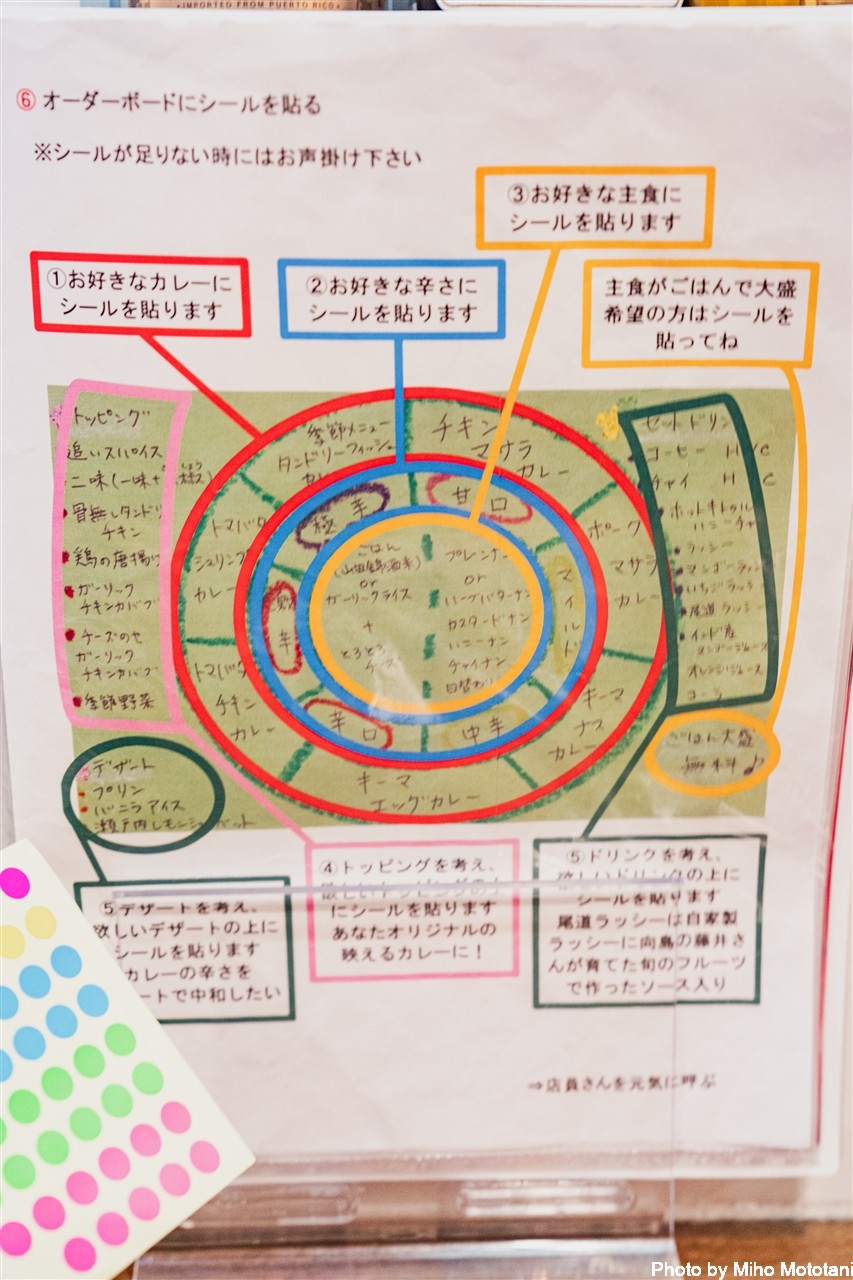 IMPORTED FROM PUERTO RICO
⑥ オーダーボードにシールを貼る
※シールが足りない時にはお声掛け下さい
③お好きな主食に
シールを貼ります
①お好きなカレーに
シールを貼ります
②お好きな辛さに
シールを貼ります
主食がごはんで大盛
希望の方はシールを
貼ってね
トッピング
追いスパイス
二味(一味+
骨無しタンドリ
チキン
鶏の唐揚げ
ガーリック
チキンカバブ
チーズのせ
ガーリック
チキンカバブ
季節野菜
季節メニュー
タンドリーフィッシュ
カレー
チキン
マサラ
カレー
ポーク
マサラ
カレー
キーマ
ナス
カレー
キーマ
エッグカレー
トマバタ
チキン
カレー
トマバタ
シュリンプ
カレー
極辛
甘口
マイルド
中辛
辛口
激辛
ごはん
or
ガーリックライス
+
とろとろ
チーズ
プレンナン
or
ハーブバターナン
カスタードナン
ハニーナン
チャイナン
セットドリンク
コーヒー H/C
チャイ H C
ホット
ラッシー
マンゴーラッシー
いちごラッシー
尾道ラッシー
インド産
マンゴージュース
オレンジジュース
コーラ
ごはん大盛
無料♪
デザート
プリン
バニラアイス
瀬戸内レモンシャーベット
⑤デザートを考え、
欲しいデザートの上に
シールを貼ります
カレーの辛さを
ートで中和したい
④トッピングを考え、
欲しいトッピングの上
にシールを貼ります
あなたオリジナルの
映えるカレーに!
⑤ドリンクを考え、
欲しいドリンクの上に
シールを貼ります
尾道ラッシーは自家製
ラッシーに向島の藤井さ
んが育てた旬のフルーツ
で作ったソース入り
⇒店員さんを元気に呼ぶ
Photo by Miho Mototani